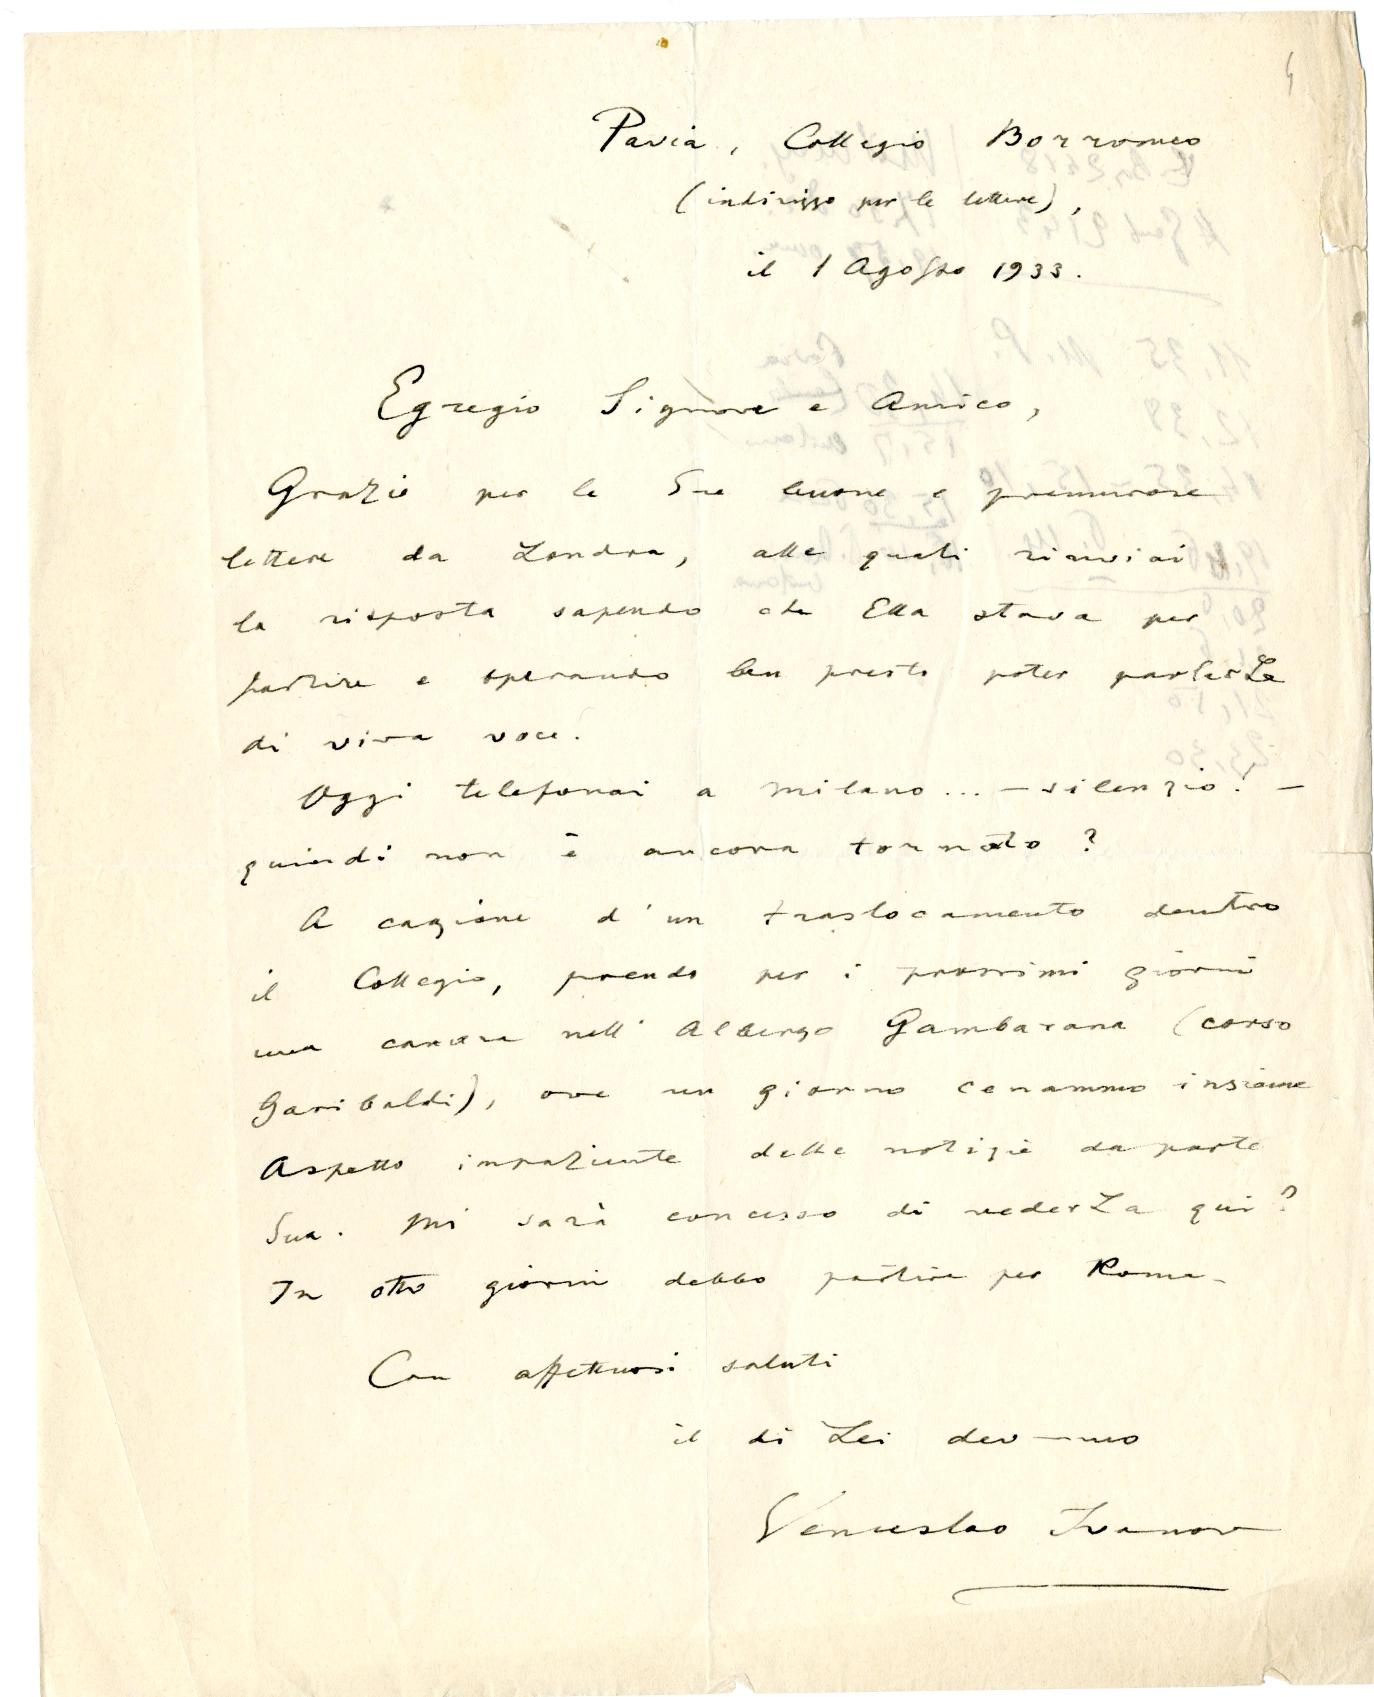 Pavia, Collegio Borromeo
(indirizzo per le lettere),
il 1 Agosto 1933.
Egregio Signore e Amico,
Grazie per le Sue buone e premurose
lettere da Londra, alle quali rinviai
la risposta sapendo che Ella stava per
partire e sperando ben presto poter parlarLe
di viva voce.
Oggi telefonai a Milano... — silenzio! —
quindi non è ancora tornato?
A cagione d'un traslocamento dentro
il Collegio, prendo per i prossimi giorni
una camera nell'Albergo Gambarana (corso
Garibaldi), ove un giorno cenammo insieme
Aspetto impaziente delle notizie da parte
Sua. Mi sarà concesso di vederLa qui?
In otto giorni debbo partire per Roma.
Con affettuosi saluti
il di Lei dev—mo
Venceslao Ivanov